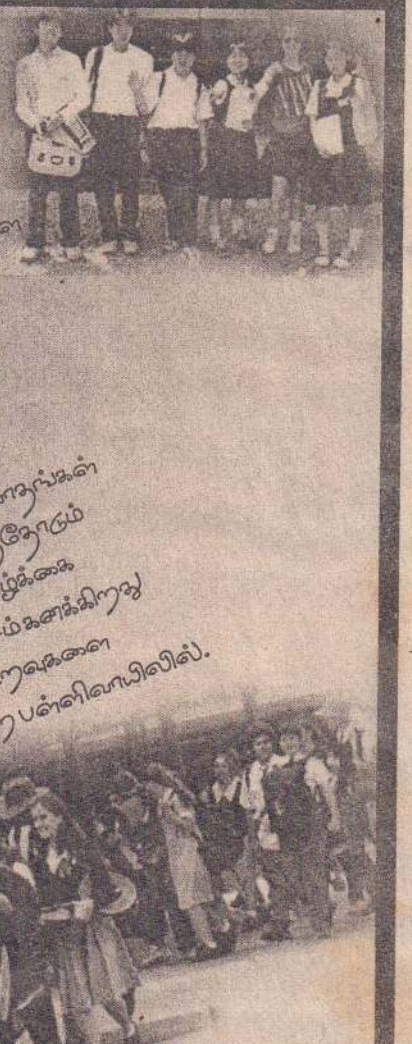 ள
ாதங்கள்
த்தோடும்
ழ்க்கை
ம்கனக்கிறது
றவுகளை
ற பள்ளிவாயிலில்.